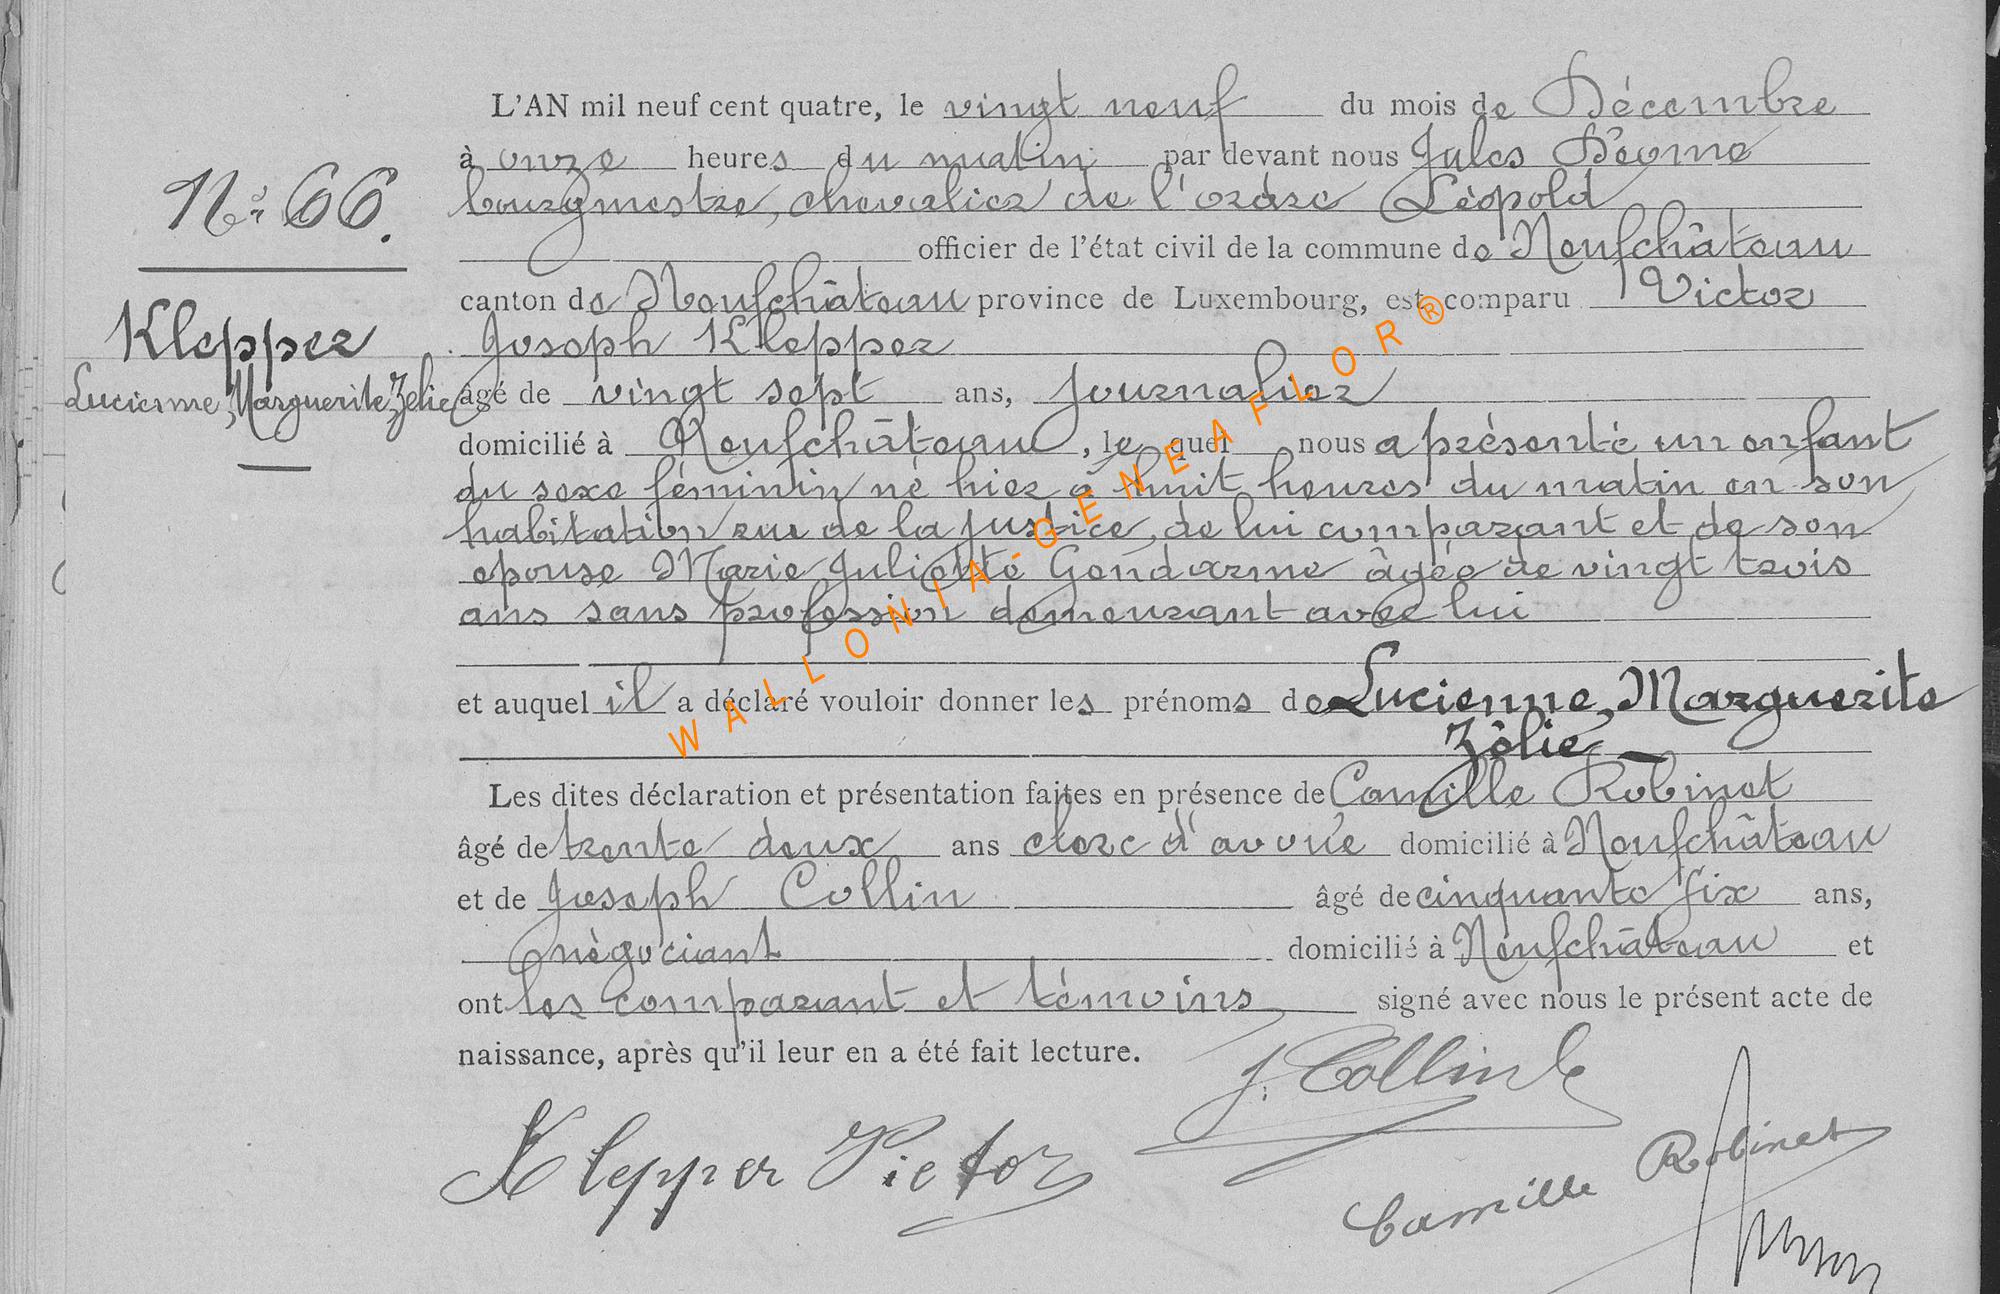 L'AN mil neuf cent quatre, le vingt neuf du mois de Décembre
à onze heures du matin par devant nous Jules Déome
bourgmestre, chevalier de l'ordre Léopold
officier de l'état civil de la commune de Neufchâteau
canton de Neufchâteau province de Luxembourg, est comparu Victor
Joseph Klepper
âgé de vingt sept ans, journalier
domicilié à Neufchâteau, le quel nous a présenté un enfant
du sexe féminin né hier à huit heures du matin en son
habitation rue de la justice, de lui comparant et de son
epouse Marie Juliette Gendarme âgée de vingt trois
ans sans profession demeurant avec lui
et auquel il a déclaré vouloir donner les prénoms de Lucienne, Marguerite
Zélie
Les dites déclaration et présentation faites en présence de Camille Robinet
âgé de trente deux ans clerc d'avoué domicilié à Neufchâteau
et de Joseph Collin âgé de cinquante six ans,
négociant domicilié à Neufchâteau et
ont les comparant et témoins signé avec nous le présent acte de
naissance, après qu'il leur en a été fait lecture.
J. Collin
Klepper Victor
Camille Robinet
N° 66.
Klepper
Lucienne, Marguerite, Zelie
WALLONIA-GENEAFLOR®